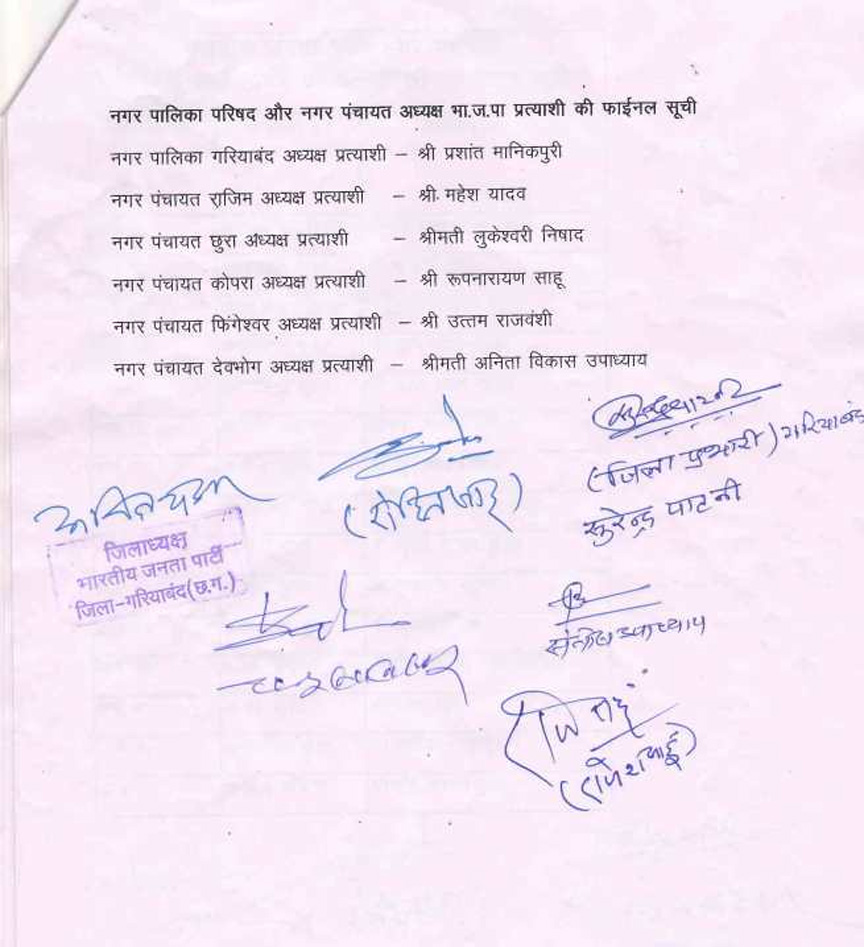 नगर पालिका परिषद और नगर पंचायत अध्यक्ष भा.ज.पा प्रत्याशी की फाईनल सूची
नगर पालिका गरियाबंद अध्यक्ष प्रत्याशी – श्री प्रशांत मानिकपुरी
नगर पंचायत राजिम अध्यक्ष प्रत्याशी – श्री महेश यादव
नगर पंचायत छुरा अध्यक्ष प्रत्याशी – श्रीमती लुकेश्वरी निषाद
नगर पंचायत कोपरा अध्यक्ष प्रत्याशी – श्री रूपनारायण साहू
नगर पंचायत फिंगेश्वर अध्यक्ष प्रत्याशी – श्री उत्तम राजवंशी
नगर पंचायत देवभोग अध्यक्ष प्रत्याशी – श्रीमती अनिता विकास उपाध्याय
(जिला प्रभारी) गरियाबंद
सुरेन्द्र पाटनी
जिलाध्यक्ष
भारतीय जनता पार्टी
जिला-गरियाबंद(छ.ग.)
उपाध्याय